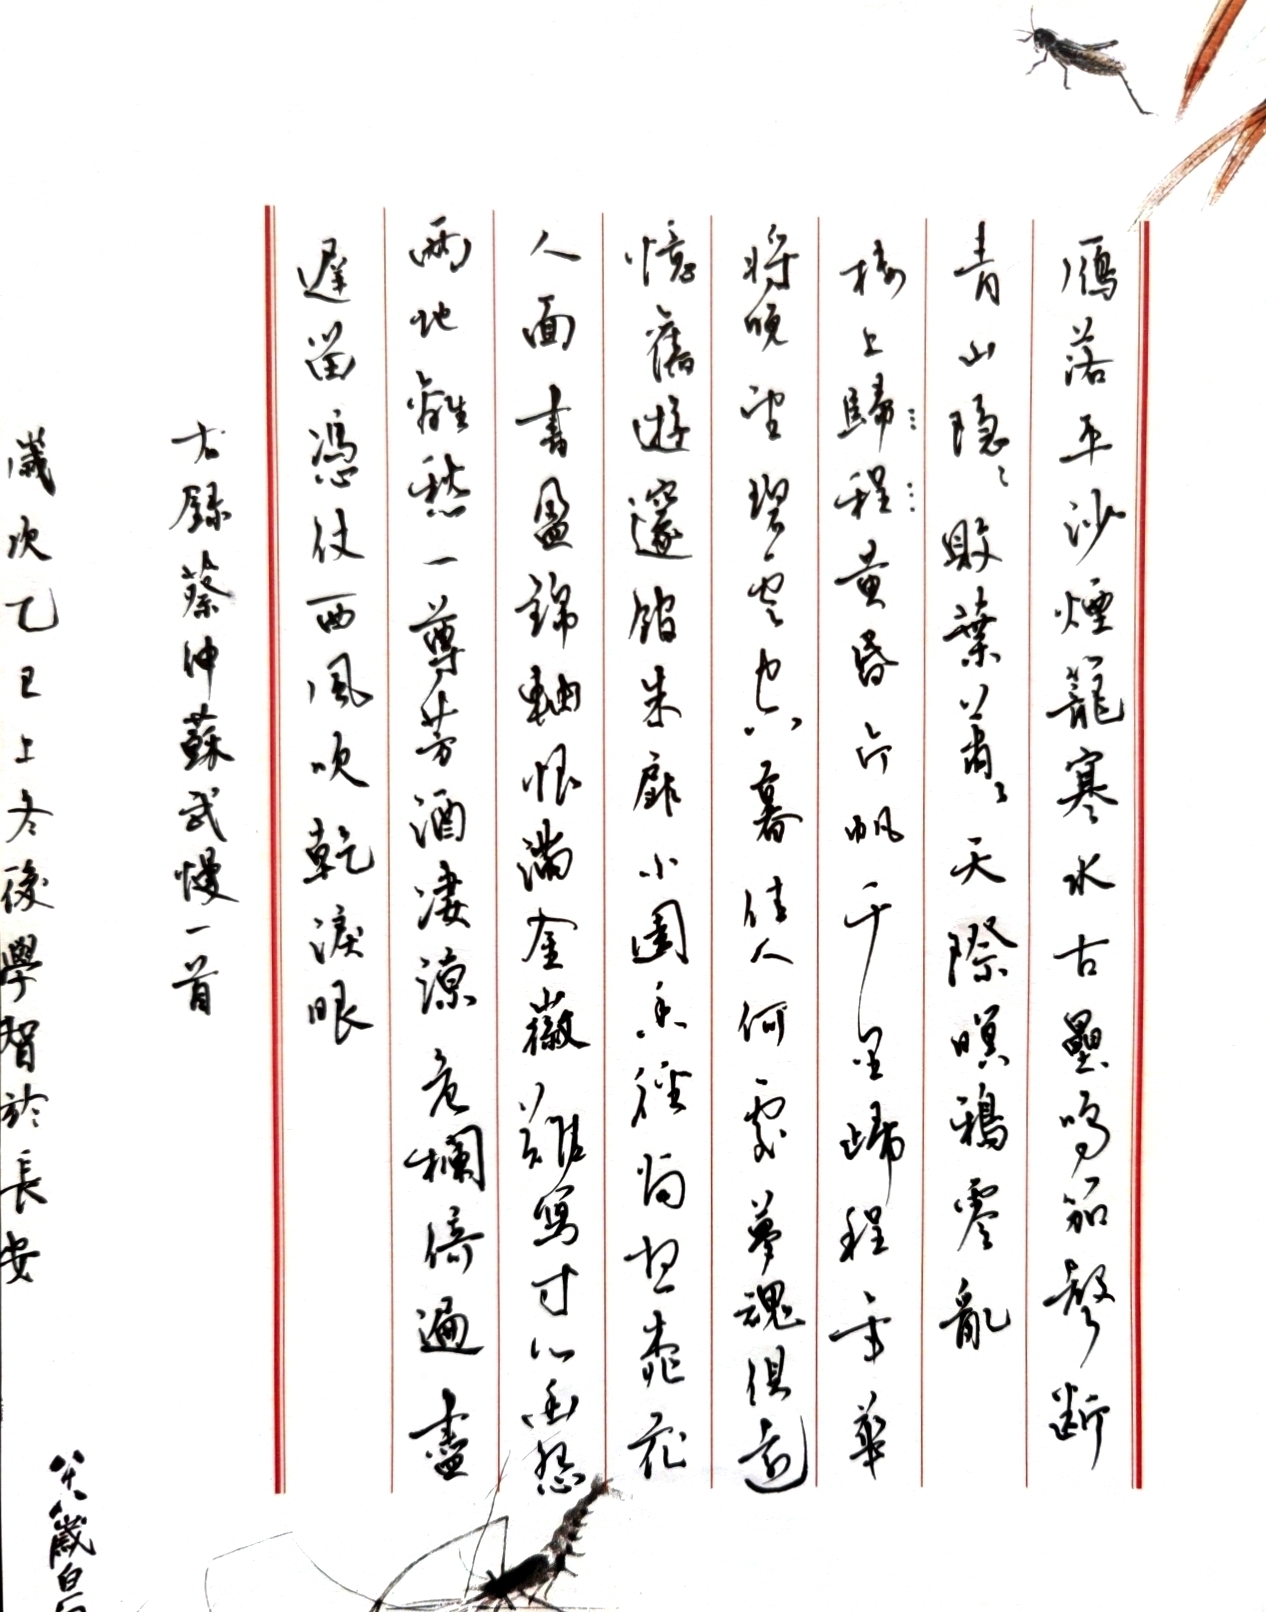 鴈落平沙煙籠寒水古壘鳴笳聲斷
青山隐〻敗葉蕭〻天際暝鴉零亂
樓上歸程黃昏片帆千里歸程年華
將晚望碧雲空暮佳人何處夢魂俱遠
憶舊遊邃館朱扉小園香徑尚想桃花
人面書盈錦軸恨滿金徽難寫寸心幽怨
兩地離愁一尊芳酒淒涼危欄倚遍盡
遲留憑仗西風吹乾淚眼
右錄蔡仲蘇武慢一首
歲次乙巳上冬後學智於長安
歲白